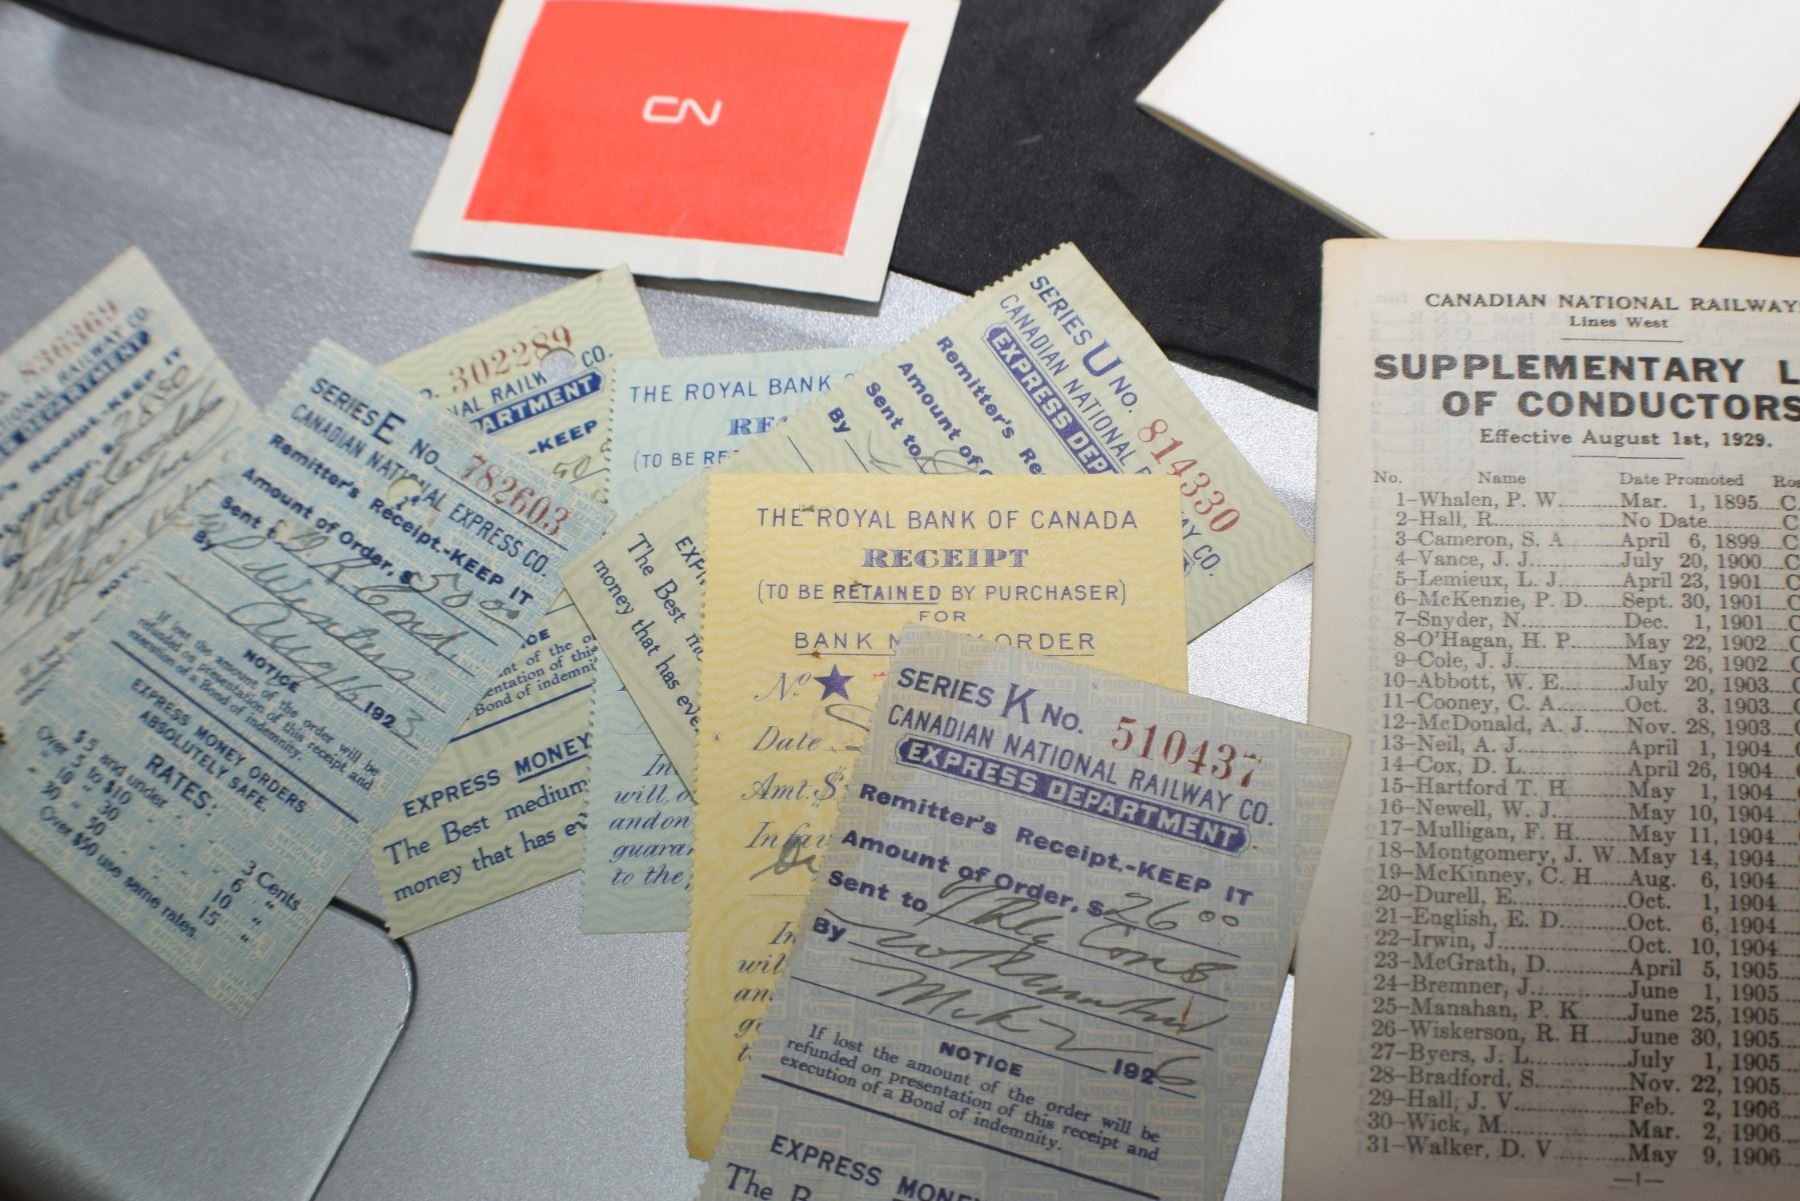 CN
836369
NATIONAL RAILWAY CO.
DEPARTMENT
Receipt.-KEEP IT
SERIES E NO. 782603
CANADIAN NATIONAL EXPRESS CO.
Remitter's Receipt.-KEEP IT
Amount of Order, $ 50 00
Sent to
By
Aug 16 1923
NOTICE
If lost the amount of the order will be
refunded on presentation of this receipt and
execution of a Bond of indemnity.
EXPRESS MONEY ORDERS
ABSOLUTELY SAFE.
RATES:
$5 and under 3 Cents
Over 5 to $10 6 "
" 10 " 30 10 "
" 30 " 50 15 "
Over $50 use same rates.
302289
CO.
ARTMENT
-KEEP
EXPRESS MONEY
The Best medium
money that has ev
THE ROYAL BANK
(TO BE RE
In
will, o
and on
guara
to the
SERIES U NO. 814330
CANADIAN NATIONAL
EXPRESS DEP
AY CO.
Remitter's Re
Amount of
Sent to
By
The Best m
money that has eve
THE ROYAL BANK OF CANADA
RECEIPT
(TO BE RETAINED BY PURCHASER)
FOR
BANK M Y ORDER
No.
Date
Amt.$
In fav
In
wil
an
SERIES K NO. 510437
CANADIAN NATIONAL RAILWAY CO.
EXPRESS DEPARTMENT
Remitter's Receipt.-KEEP IT
Amount of Order, $ 26 00
Sent to
By
1926
NOTICE
If lost the amount of the order will be
refunded on presentation of this receipt and
execution of a Bond of indemnity.
EXPRESS MONE
The B
CANADIAN NATIONAL RAILWAY
Lines West
SUPPLEMENTARY L
OF CONDUCTORS
Effective August 1st, 1929.
No. Name Date Promoted
1-Whalen, P. W. Mar. 1, 1895 C.
2-Hall, R. No Date C
3-Cameron, S. A April 6, 1899 C
4-Vance, J. J. July 20, 1900 C
5-Lemieux, L. J. April 23, 1901 C
6-McKenzie, P. D. Sept. 30, 1901 C
7-Snyder, N. Dec. 1, 1901 C
8-O'Hagan, H. P. May 22, 1902 C
9-Cole, J. J. May 26, 1902 C
10-Abbott, W. E. July 20, 1903 C
11-Cooney, C. A. Oct. 3, 1903 C
12-McDonald, A. J. Nov. 28, 1903
13-Neil, A. J. April 1, 1904
14-Cox, D. L. April 26, 1904
15-Hartford T. H. May 1, 1904
16-Newell, W. J. May 10, 1904
17-Mulligan, F. H. May 11, 1904
18-Montgomery, J. W. May 14, 1904
19-McKinney, C. H. Aug. 6, 1904
20-Durell, E. Oct. 1, 1904
21-English, E. D. Oct. 6, 1904
22-Irwin, J. Oct. 10, 1904
23-McGrath, D. April 5, 1905
24-Bremner, J. June 1, 1905
25-Manahan, P. K June 25, 1905
26-Wiskerson, R. H. June 30, 1905
27-Byers, J. L. July 1, 1905
28-Bradford, S. Nov. 22, 1905
29-Hall, J. V. Feb. 2, 1906
30-Wick, M. Mar. 2, 1906
31-Walker, D. V May 9, 1906
—1—